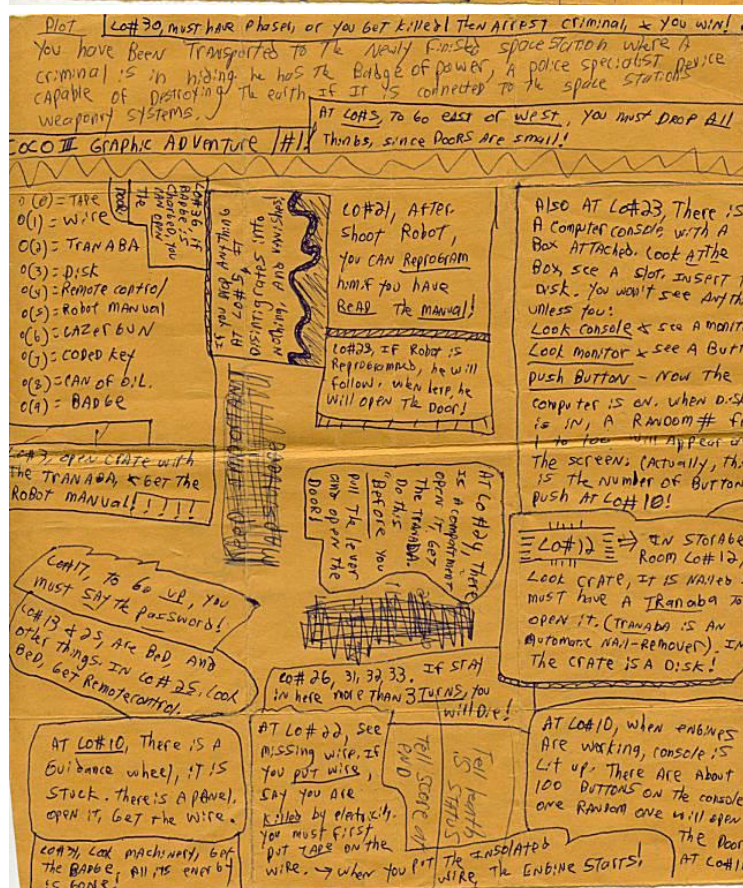 Plot
Lo#30, must have phaser, or you Get killed! Then ARREST criminal, & You win!
You have Been Transported to The Newly Finished space station where A
criminal is in hiding. he has The Badge of power, A police specialist Device
capable of Destroying The earth If It is connected to The space stations
weaponry systems.
AT Lo#5, To Go east or west, you must DROP All
Things, since DOORS Are small!
COCO III GRAPHIC ADVENTURE #1!
O(0) = TAPE
O(1) = wire
O(2) = TRANABA
O(3) = Disk
O(4) = Remote control
O(5) = Robot MANUAL
O(6) = LAZER GUN
O(7) = CODED Key
O(8) = CAN OF OIL.
O(9) = BADGE
Lo#30, if
BADGE is
CHARGED, you
CAN OPEN
The
DOOR!
Lo#21, After
shoot Robot,
you CAN Reprogram
him if you have
READ The MANUAL!
Lo#23, IF Robot is
Reprogrammed, he will
follow. when here, he
will open The Door!
Also AT Lo#23, There is
A computer console with A
Box ATTAched. Look AT The
Box, see A slot. INSERT
Disk. You won't see Any
unless you:
Look console & see A monit
Look monitor & see A Butt
push Button - Now The
computer is on. when Disk
is in, A RANDOM #
1 to 100 will Appear
The screen. (Actually, th
is The Number of Button
push AT Lo#10!
Lo#3, open CRATE with
The TRANABA, & Get The
Robot MANUAL!!!!!
AT Lo#24, There
Is A compartment
open IT, GET
The TRANABA.
Do This
"Before" you
Pull The lever
and open the
DOOR!
Lo#12
IN STORAGE
Room Lo#12,
Look CRATE, It is NAiled
must have A TRanaba To
open iT. (TRANABA is AN
Automatic NAil-Remover). IN
The crate is A Disk!
Lo#17, To Go up, you
must SAY the password!
Lo#13 & 25, Are BeD, And
other Things. IN Lo#25, Look
BeD, Get Remotecontrol.
Lo#26, 31, 32, 33. If STAY
in here more THAN 3 TURNS, you
will Die!
AT Lo#10, There is A
Guidance wheel, iT is
stuck. There is A PANel.
open it, Get The wire.
AT Lo#22, see
missing wire. If
you put wire,
SAY you are
killed by electricity.
You must first
put TAPE on the
wire. → when you put The INSOLATED
wire, The ENGINE STARTS!
Tell score at
END
Tell health
IS STATUS
AT Lo#10, when engines
Are working, console is
Lit up. There Are About
100 Buttons on the console
one Random one will open
The Door
AT Lo#1
Look machinery, Get
The BADGE, All its energy
is Gone.